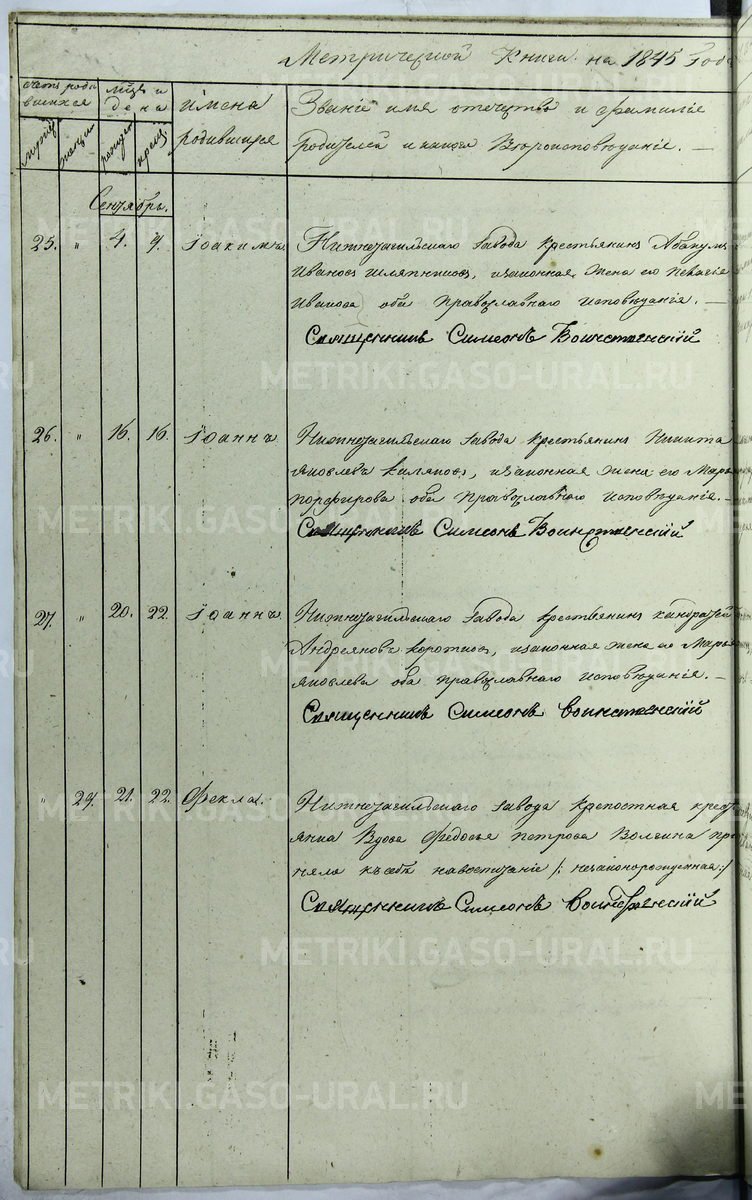 Метрической Книги на 1845 Годъ
счетъ роди мцъ и имена Званіе имя отечество и фамиліе
вшихся дена родившихся родителей и какого Вѣроисповѣданіе. —
Сентябрь.
25. " 4. 9. Іоакимъ Нижнетагильскаго Завода крестьянинъ Абакумъ
Ивановъ Шляпниковъ, изаконная жена его Пелагіе
Иванова оба православнаго исповѣданіе. —
Священникъ Симеонъ Воинственскій
26. " 16. 16. Іоаннъ Нижнетагильскаго Завода крестьянинъ Никита
Яковлевъ Каляповъ, изаконная жена его Марь
Порфирова оба православнаго исповѣданіе. —
Священникъ Симеонъ Воинственскій
27. " 20. 22. Іоаннъ Нижнетагильскаго Завода крестьянинъ Кандратей
Андреяновъ Коротковъ, изаконная жена ео Марья
Яковлева оба православнаго исповѣданіе. —
Священникъ Симеонъ Воинственскій
" 29. 21. 22. Фекла. Нижнетагильскаго Завода крепостная кресть
янка Вдова Федосья Петрова Волгина при
няла къ себѣ навоспитаніе /: незаконорожденная:/
Священникъ Симеонъ Воинственскій
METRIKI.GASO-URAL.RU